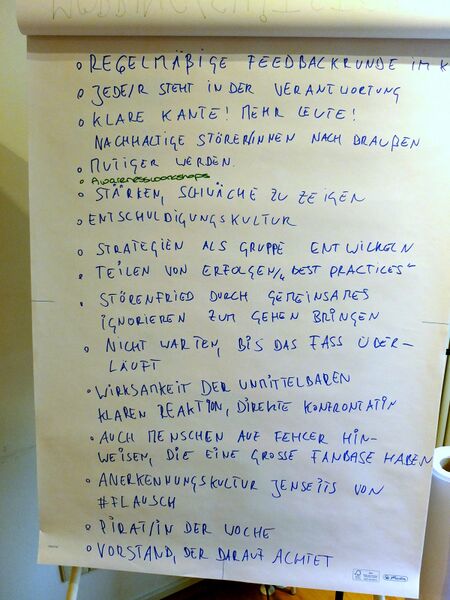 ◦ REGELMÄßIGE FEEDBACKRUNDE IM K
◦ JEDE/R STEHT IN DER VERANTWORTUNG
◦ KLARE KANTE! MEHR LEUTE!
NACHHALTIGE STÖRER/INNEN NACH DRAUßEN
◦ MUTIGER WERDEN.
◦ Awarenessworkshops
◦ STÄRKEN, SCHWÄCHE ZU ZEIGEN
◦ ENTSCHULDIGUNGSKULTUR
◦ STRATEGIEN ALS GRUPPE ENTWICKELN
◦ TEILEN VON ERFOLGEN/„BEST PRACTICES“
◦ STÖRENFRIED DURCH GEMEINSAMES
IGNORIEREN ZUM GEHEN BRINGEN
◦ NICHT WARTEN, BIS DAS FASS ÜBER-
LÄUFT
◦ WIRKSAMKEIT DER UNMITTELBAREN
KLAREN REAKTION, DIREKTE KONFRONTATIN
◦ AUCH MENSCHEN AUF FEHLER HIN-
WEISEN, DIE EINE GROSSE FANBASE HABEN
◦ ANERKENNUNGSKULTUR JENSEITS VON
#FLAUSCH
◦ PIRAT/IN DER WOCHE
◦ VORSTAND, DER DARAUF ACHTET
FSC